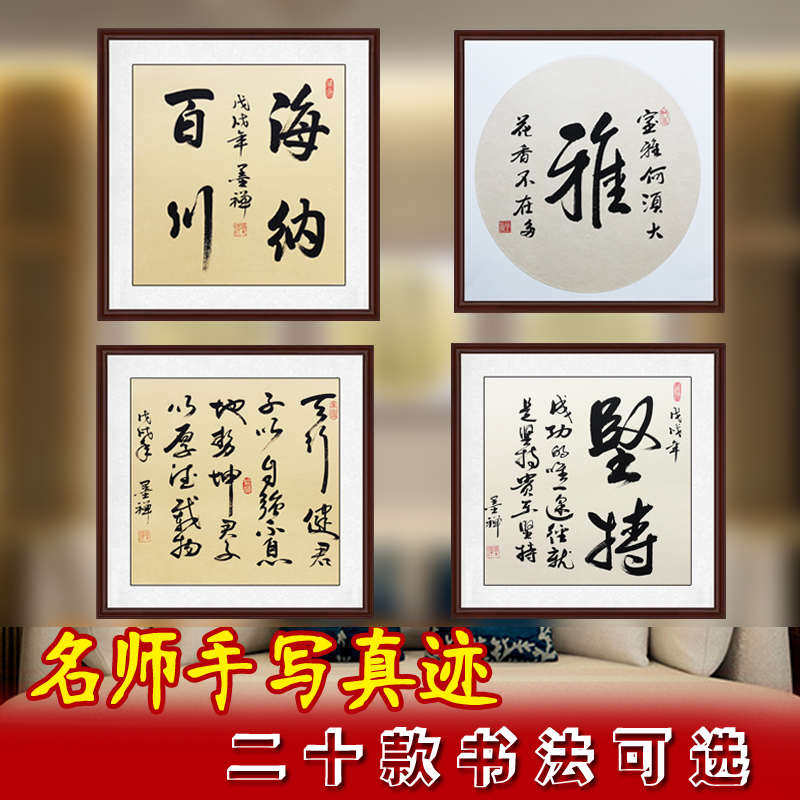 海纳
戊戌年 墨禅
百川
室雅何須大
雅
花香不在多
天行健君
子以自强不息
地势坤君子
以厚德载物
戊戌年 墨禅
戊戌年
坚持
成功的唯一途径就
是坚持贵在坚持
墨禅
名师手写真迹
二十款书法可选